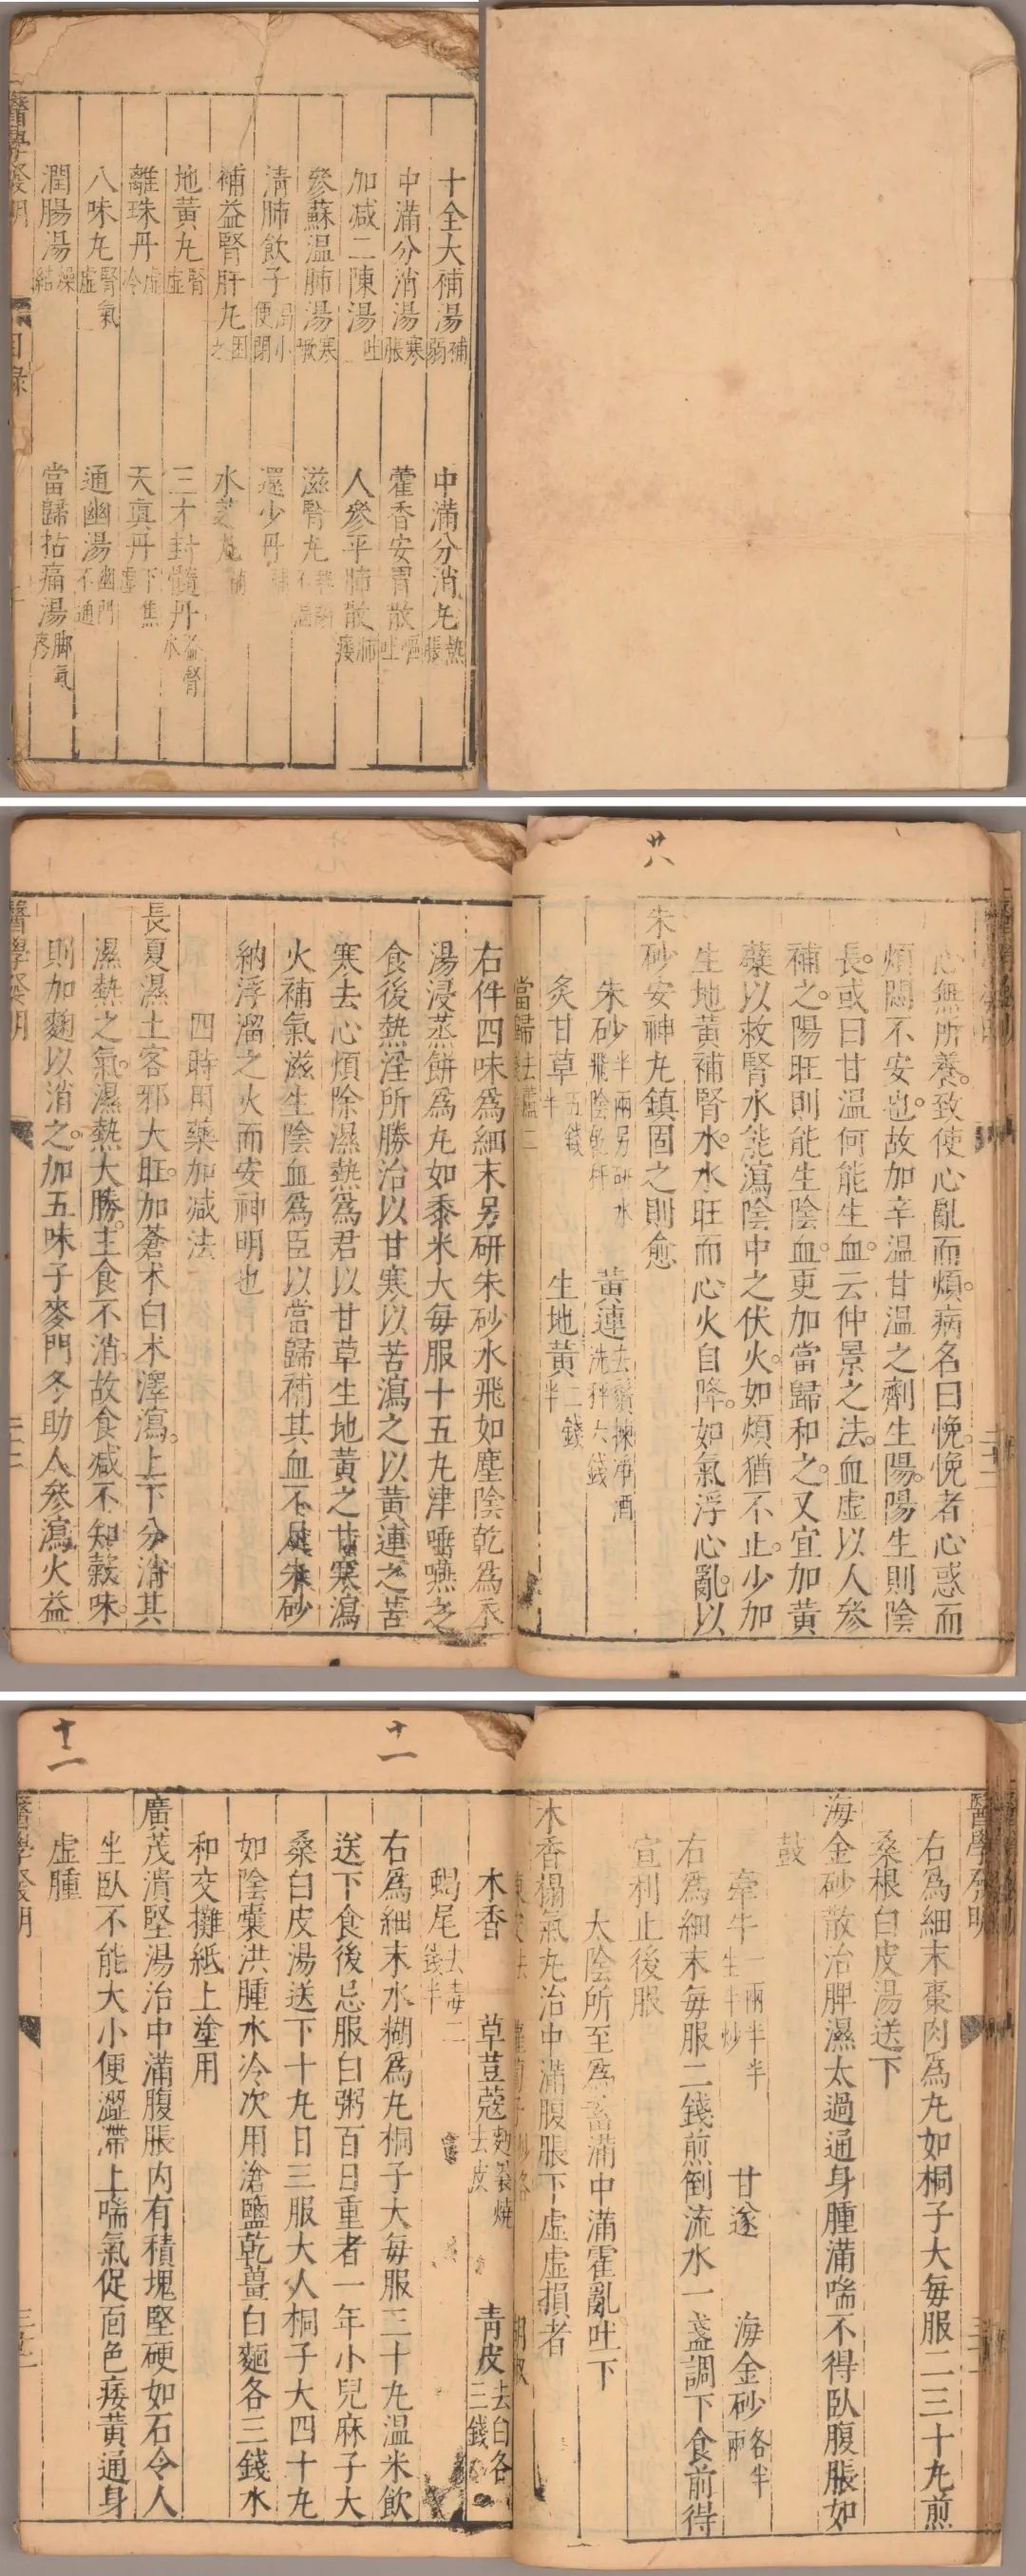 十全大補湯 補弱 中滿分消丸 熱脹
中滿分消湯 寒脹 藿香安胃散 嘔吐
加减二陳湯 吐 人參平肺散 肺痿
參蘇温肺湯 寒嗽 滋腎丸
清肺飲子 小便閉 還少丹 補
補益腎肝丸 水芝丸 補
地黃丸 腎虛 三才封髓丹 益腎水
離珠丹 虛冷 天真丹 下焦虛
八味丸 腎氣虛 通幽湯 幽門不通
潤腸湯 燥結 當歸拈痛湯 脚氣疼
醫學發明 目錄
廿八
心無所養。致使心亂而煩。病名曰悗。悗者心惑而
煩悶不安也。故加辛温甘温之劑生陽。陽生則陰
長。或曰甘温何能生血。云仲景之法。血虛以人參
補之。陽旺則能生陰血。更加當歸和之。又宜加黃
蘗以救腎水。能瀉陰中之伏火。如煩猶不止。少加
生地黃補腎水。水旺而心火自降。如氣浮心亂。以
朱砂安神丸鎮固之則愈
朱砂 半兩另研水飛陰乾秤 黃連 去鬚揀凈酒洗秤六錢
炙甘草 五錢半 生地黃 二錢半
當歸 去蘆二
右件四味爲細末另研朱砂水飛如塵陰乾爲衣
湯浸蒸餅爲丸如黍米大每服十五丸津唾嚥之
食後熱淫所勝治以甘寒以苦瀉之以黃連之苦
寒去心煩除濕熱爲君以甘草生地黃之甘寒瀉
火補氣滋生陰血爲臣以當歸補其血不足朱砂
納浮溜之火而安神明也
四時用藥加减法
長夏濕土客邪大旺。加蒼朮白朮澤瀉。上下分消其
濕熱之氣。濕熱大勝。主食不消。故食減不知穀味。
則加麯以消之。加五味子麥門冬助人參瀉火益
醫學發明
醫學發明
右爲細末棗肉爲丸如桐子大每服二三十丸煎
桑根白皮湯送下
海金砂散治脾濕太過通身腫滿喘不得臥腹脹如
鼓
牽牛 一兩半半生半炒 甘遂 海金砂 各半兩
右爲細末每服二錢煎倒流水一盞調下食前得
宣利止後服
太陰所至爲蓄滿中滿霍亂吐下
木香榻氣丸治中滿腹脹下虛虛損者
十一
木香 草荳蔻 麪裹燒去皮 青皮 去白各三錢
蝎尾 去毒二錢半
右爲細末水糊爲丸桐子大每服三十丸温米飲
送下食後忌服白粥百日重者一年小兒麻子大
桑白皮湯送下十丸日三服大人桐子大四十丸
如陰囊洪腫水冷次用滄鹽乾薑白麵各三錢水
和交攤紙上塗用
廣茂潰堅湯治中滿腹脹内有積塊堅硬如石令人
坐臥不能大小便澀滯上喘氣促面色痿黃通身
虛腫
十一
醫學發明